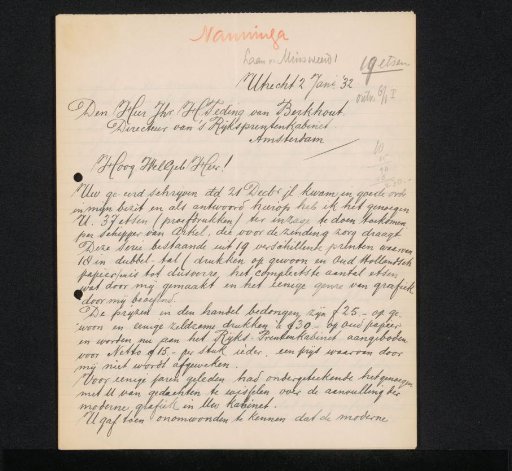 Nanninga
Laan v. Minsweerd 1
19 etsen
Utrecht 2 Jani '32
Den Heer Jhr. H. Teding van Berkhout
Directeur van 's Rijksprentenkabinet
Amsterdam
Hoog WelGeb Heer!
Uw geeerd schrijven dd 28 Decbr jl kwam in goede orde
in mijn bezit en als antwoord hierop heb ik het genoegen
U. 37 etsen (proefdrukken) ter inzage te doen toekomen
per schipper van Arkel, die voor de zending zorg draagt.
Deze serie bestaande uit 19 verschillende prenten waarvan
18 in dubbel-tal (drukken op gewoon en Oud Hollandsch
papier) is tot dusverre, het complectste aantal etsen,
wat door mij gemaakt en het eenige genre van grafiek
door mij beoefend.
De prijzen in den handel bedongen, zijn f 25.- op ge-
woon en eenige zeldzame drukken à f 30.- op oud papier
en worden nu aan het Rijks-Prentenkabinet aangeboden
voor Netto f 15.- per stuk ieder, een prijs waarvan door
mij niet wordt afgeweken.
Voor eenige jaren geleden had ondergeteekende het genoegen
met U van gedachten te wisselen over de aanvulling der
moderne grafiek in Uw kabinet.
U gaf toen onomwonden te kennen dat de moderne